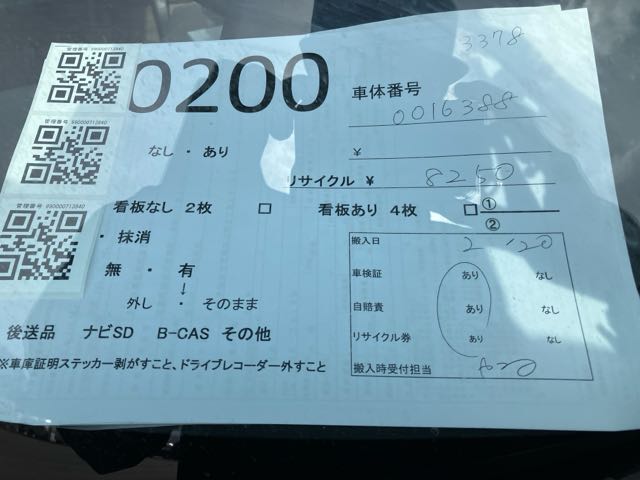 3378
管理番号 590000712840
管理番号 590000712840
管理番号 590000712840
0200
車体番号
0016388
なし ・ あり
¥
リサイクル ¥ 8250
看板なし 2枚 □ 看板あり 4枚 □ ①
②
・ 抹消
無 ・ 有
↓
外し ・ そのまま
後送品 ナビSD B-CAS その他
※車庫証明ステッカー剥がすこと、ドライブレコーダー外すこと
搬入日 2/20
車検証 あり なし
自賠責 あり なし
リサイクル券 あり なし
搬入時受付担当